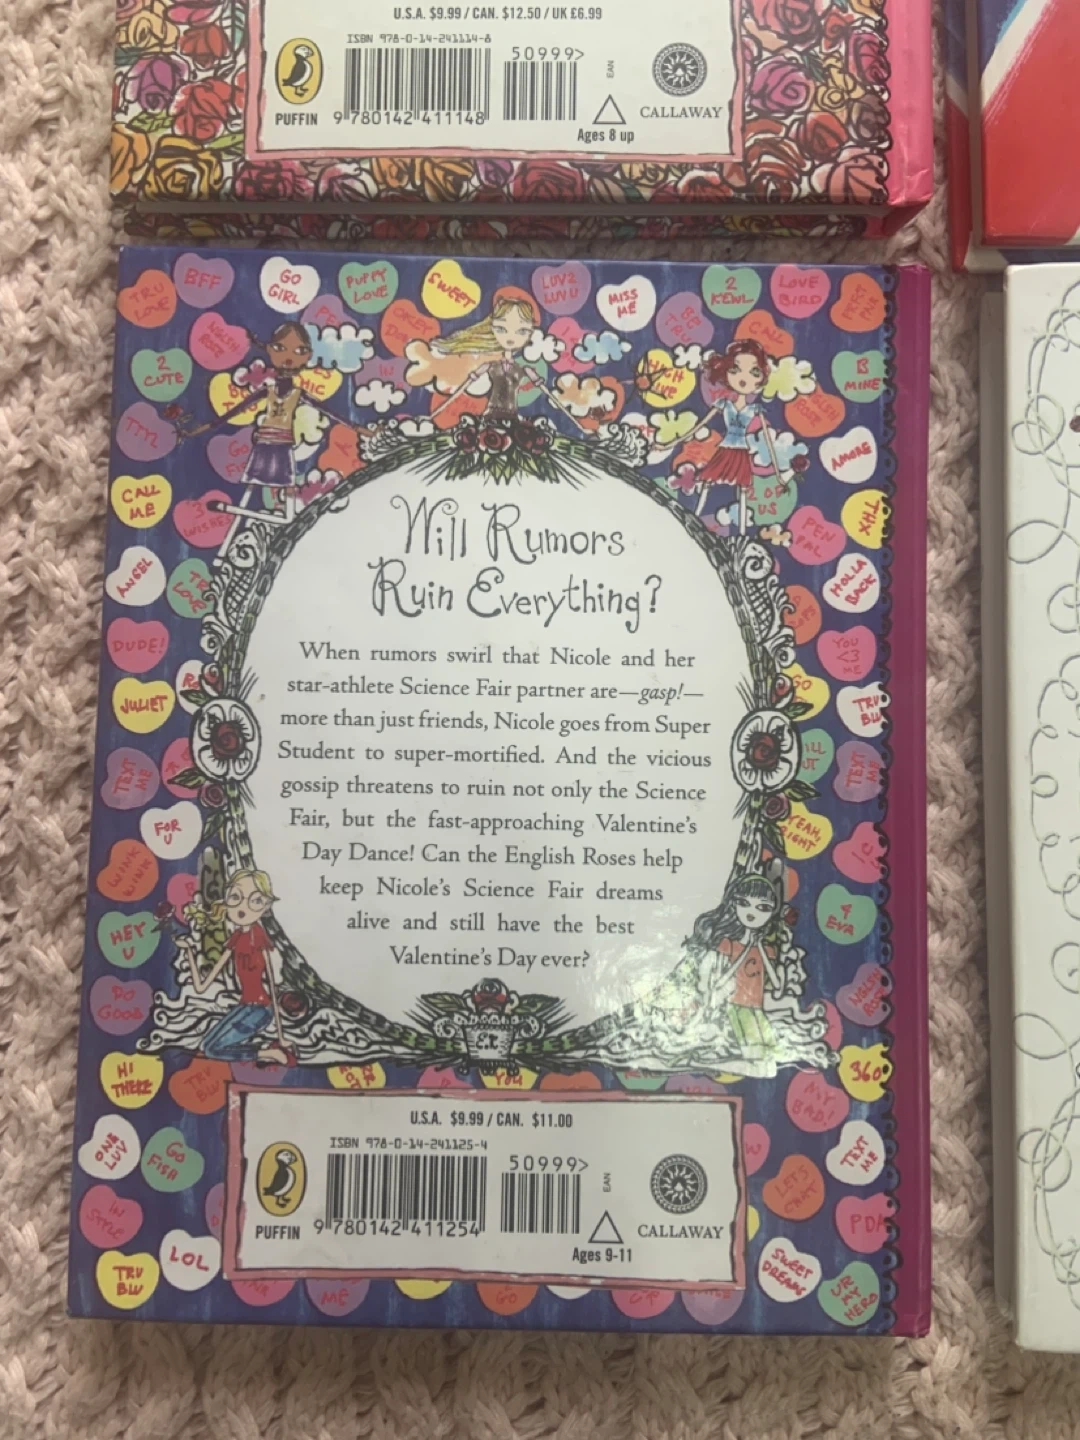 U.S.A. $9.99 / CAN. $12.50 / UK £6.99
ISBN 978-0-14-241114-8
50999>
EAN
PUFFIN
9 780142 411148
CALLAWAY
Ages 8 up
BFF
GO GIRL
PUPPY LOVE
SWEET
LUV2 LUVU
MISS ME
2 KEWL
LOVE BIRD
TRU LOVE
CALL
2 CUTE
B MINE
TTYL
AMORE
CALL ME
3 WISHES
2 OF US
PEN PAL
THX
ANGEL
HOLLA BACK
DUDE!
YOU <3 ME
JULIET
GO
TRU BLU
TEXT ME
TEXT ME
FOR U
YEAH, RIGHT
WINK WINK
HEY U
4 EVA
DO GOOD
Will Rumors
Ruin Everything?
When rumors swirl that Nicole and her
star-athlete Science Fair partner are—gasp!—
more than just friends, Nicole goes from Super
Student to super-mortified. And the vicious
gossip threatens to ruin not only the Science
Fair, but the fast-approaching Valentine's
Day Dance! Can the English Roses help
keep Nicole's Science Fair dreams
alive and still have the best
Valentine's Day ever?
HI THERE
TRU BLU
YOU
MY BAD!
360
ONE LUV
GO FISH
TEXT ME
IN STYLE
LET'S CHAT
PDA
LOL
TRU BLU
ME
GO
SWEET DREAMS
UR MY HERO
U.S.A. $9.99 / CAN. $11.00
ISBN 978-0-14-241125-4
50999>
EAN
PUFFIN
9 780142 411254
CALLAWAY
Ages 9-11